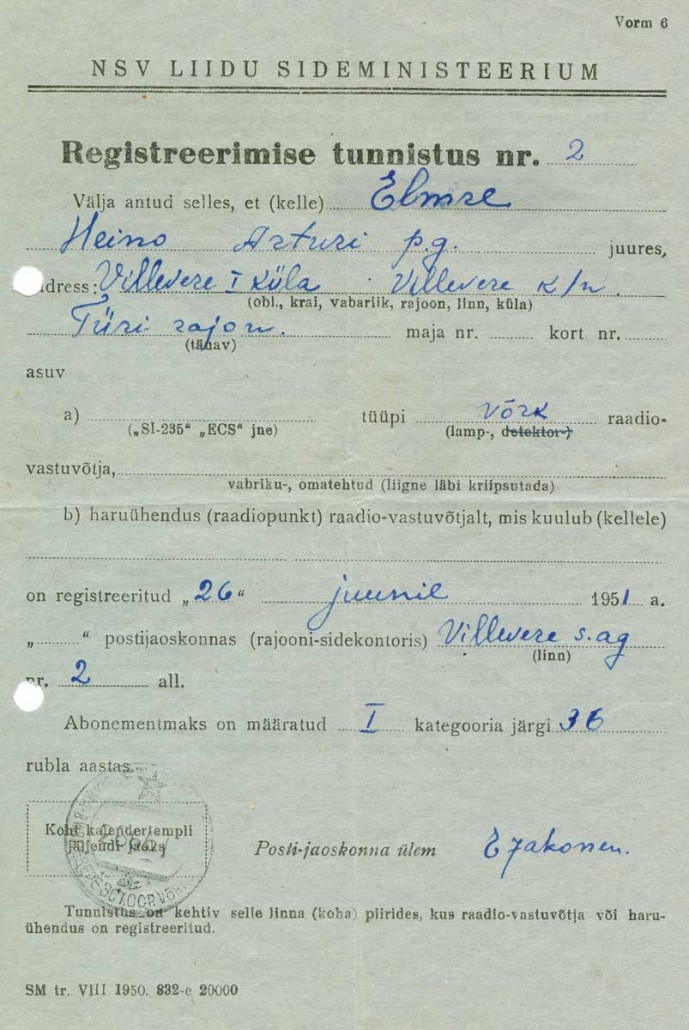 Vorm 6
NSV LIIDU SIDEMINISTEERIUM
Registreerimise tunnistus nr. 2
Välja antud selles, et (kelle) Elmre
Heino Arturi p.g. juures,
dress: Villevere I küla Villevere k/n.
(obl., krai, vabariik, rajoon, linn, küla)
Türi rajon. maja nr. kort nr.
(tänav)
asuv
a) tüüpi võrk raadio-
(„SI-235“ „ECS“ jne) (lamp-, detektor-)
vastuvõtja,
vabriku-, omatehtud (liigne läbi kriipsutada)
b) haruühendus (raadiopunkt) raadio-vastuvõtjalt, mis kuulub (kellele)
on registreeritud „26“ juunil 1951 a.
„ “ postijaoskonnas (rajooni-sidekontoris) Villevere s.ag
(linn)
nr. 2 all.
Abonementmaks on määratud I kategooria järgi 36
rubla aastas.
Koht kalendertempli
jäljendi jaoks
Posti-jaoskonna ülem EJakonen.
Tunnistus on kehtiv selle linna (koha) piirides, kus raadio-vastuvõtja või haru-
ühendus on registreeritud.
SM tr. VIII 1950. 832-e 20000